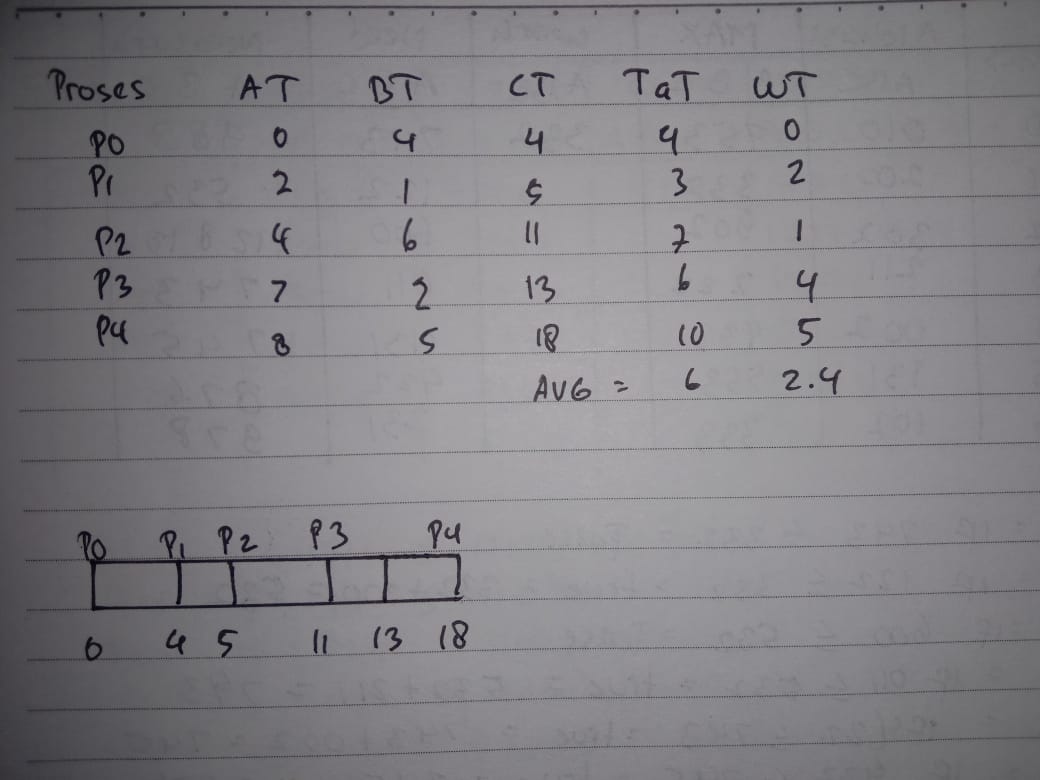 Proses AT BT CT TaT WT
P0 0 4 4 4 0
P1 2 1 5 3 2
P2 4 6 11 7 1
P3 7 2 13 6 4
P4 8 5 18 10 5
AVG = 6 2.4
P0 P1 P2 P3 P4
0 4 5 11 13 18